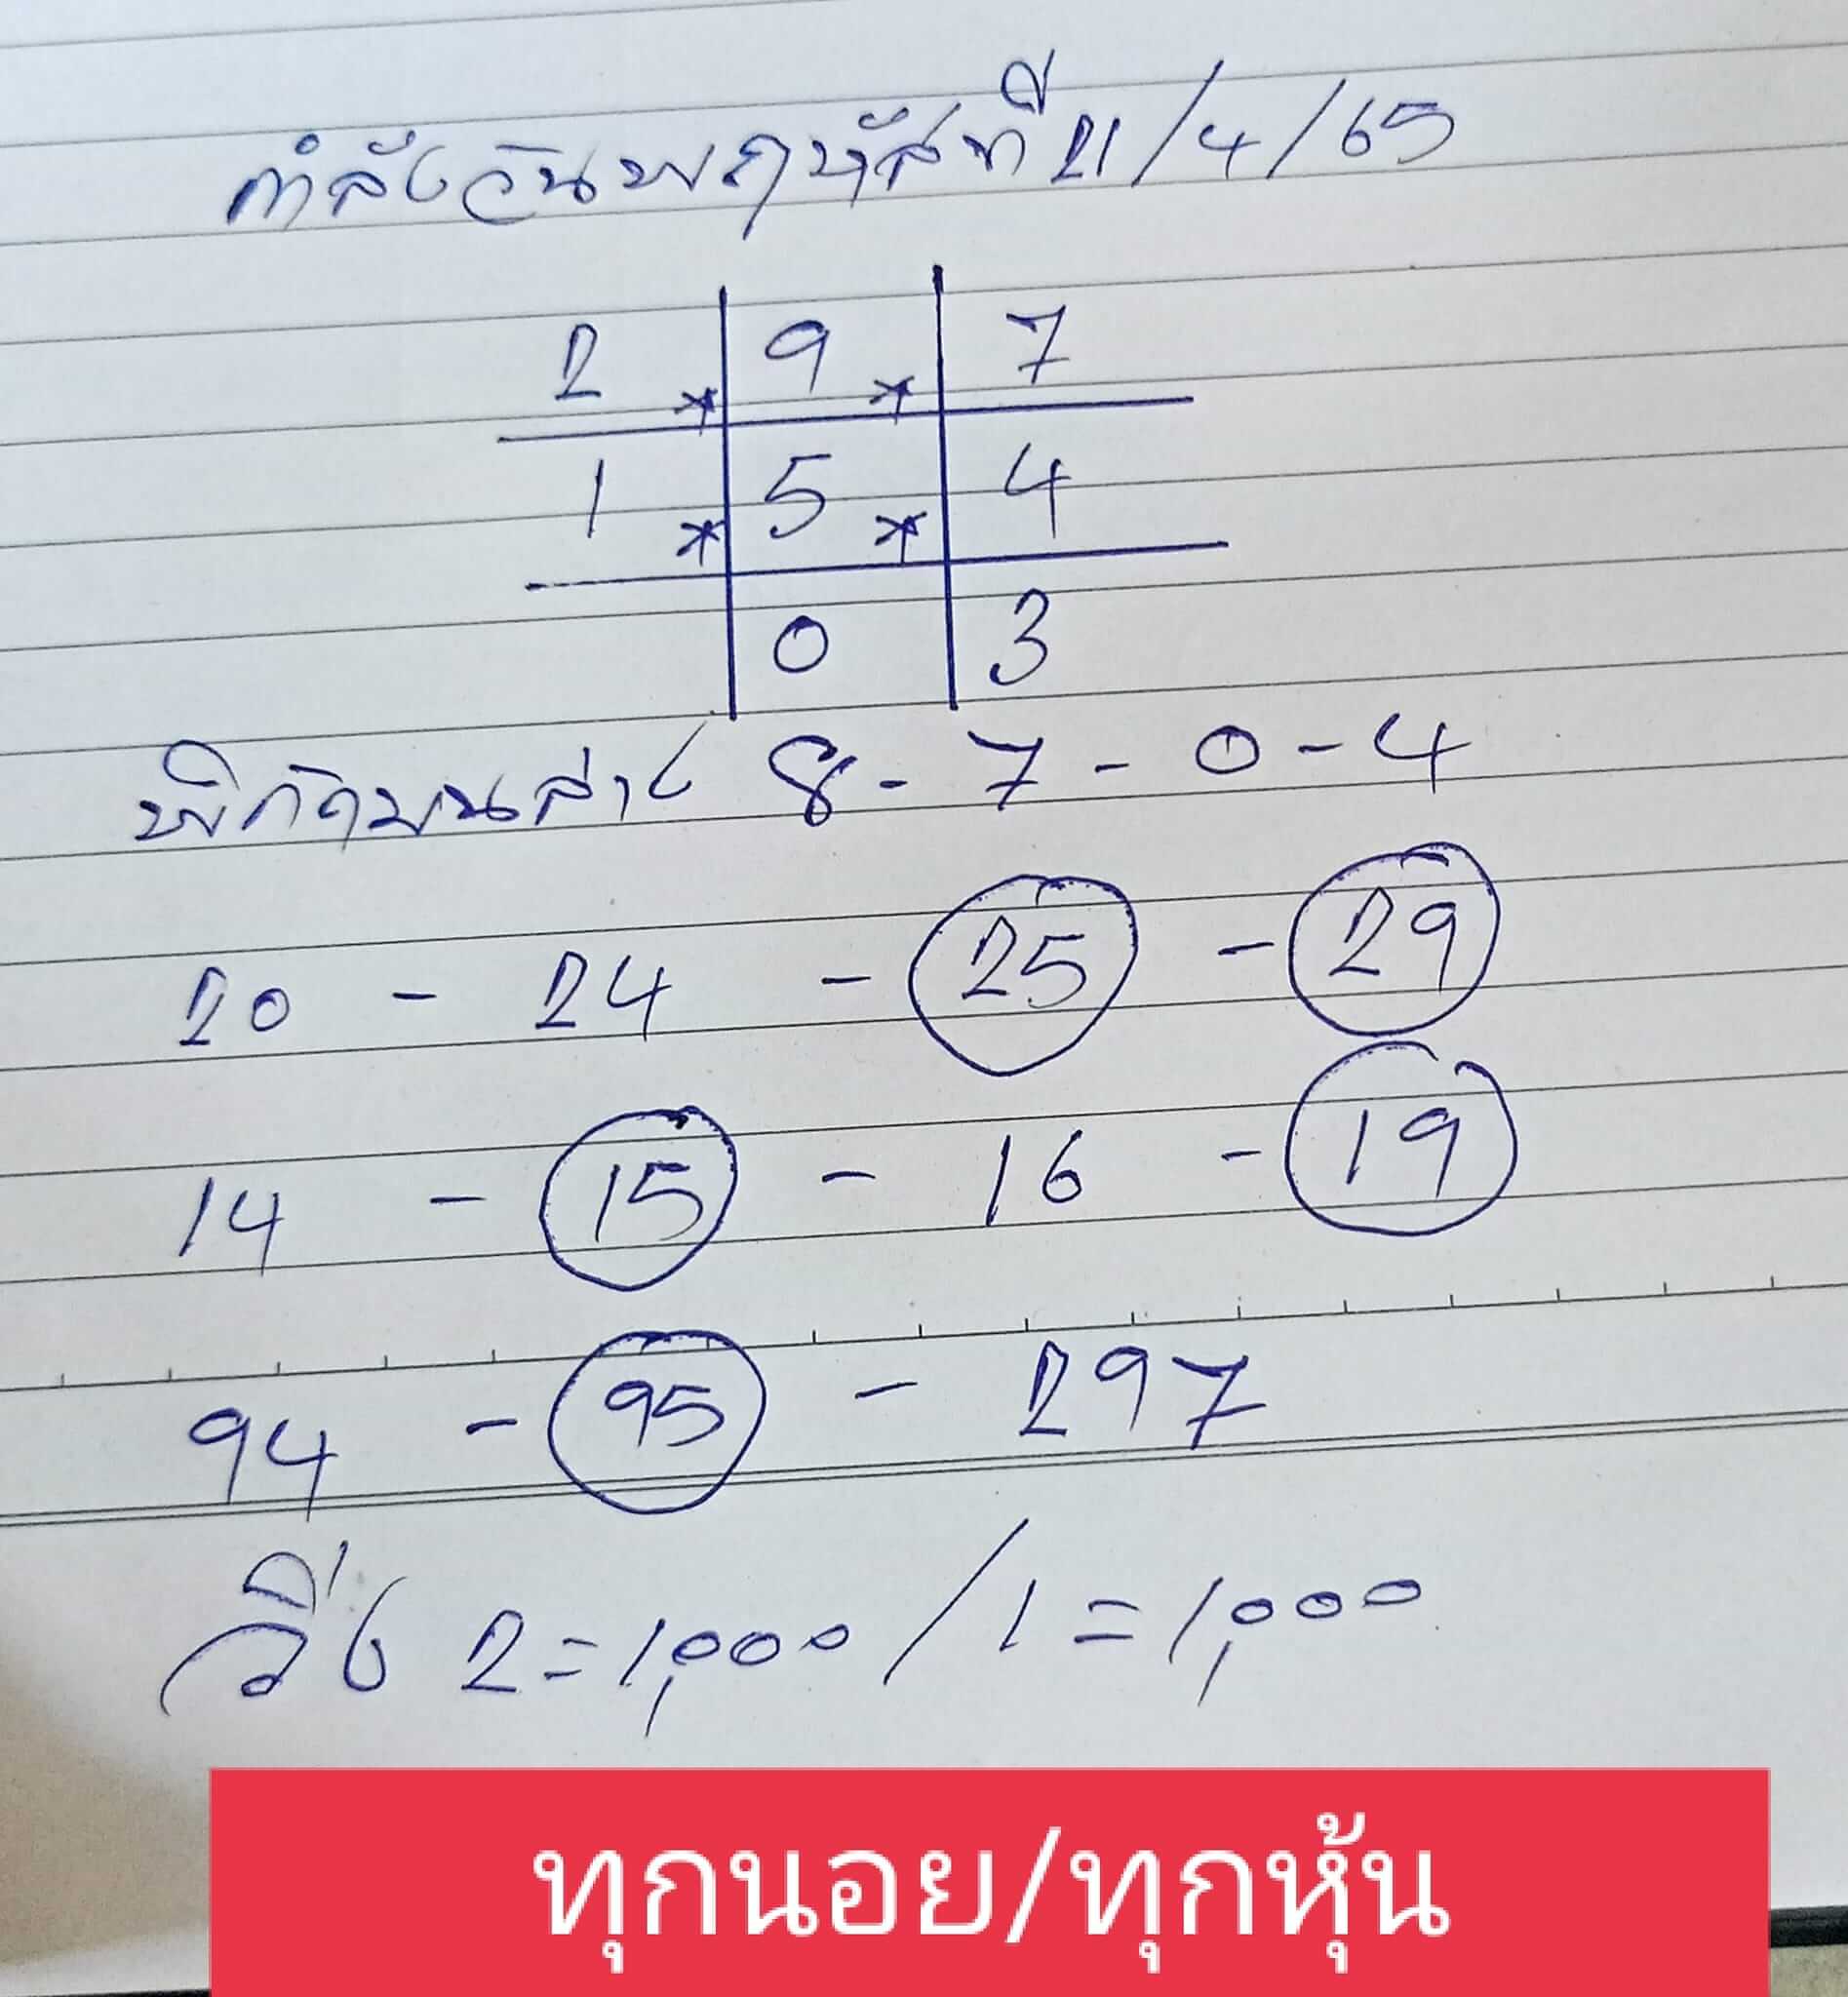 กำลังวันพฤหัสที่ 21/4/65
2 * 9 * 7
1 * 5 * 4
0 3
พิกัดบนล่าง 8 - 7 - 0 - 4
20 - 24 - 25 - 29
14 - 15 - 16 - 19
94 - 95 - 297
วิ่ง 2 = 1,000 / 1 = 1,000
ทุกนอย/ทุกหุ้น